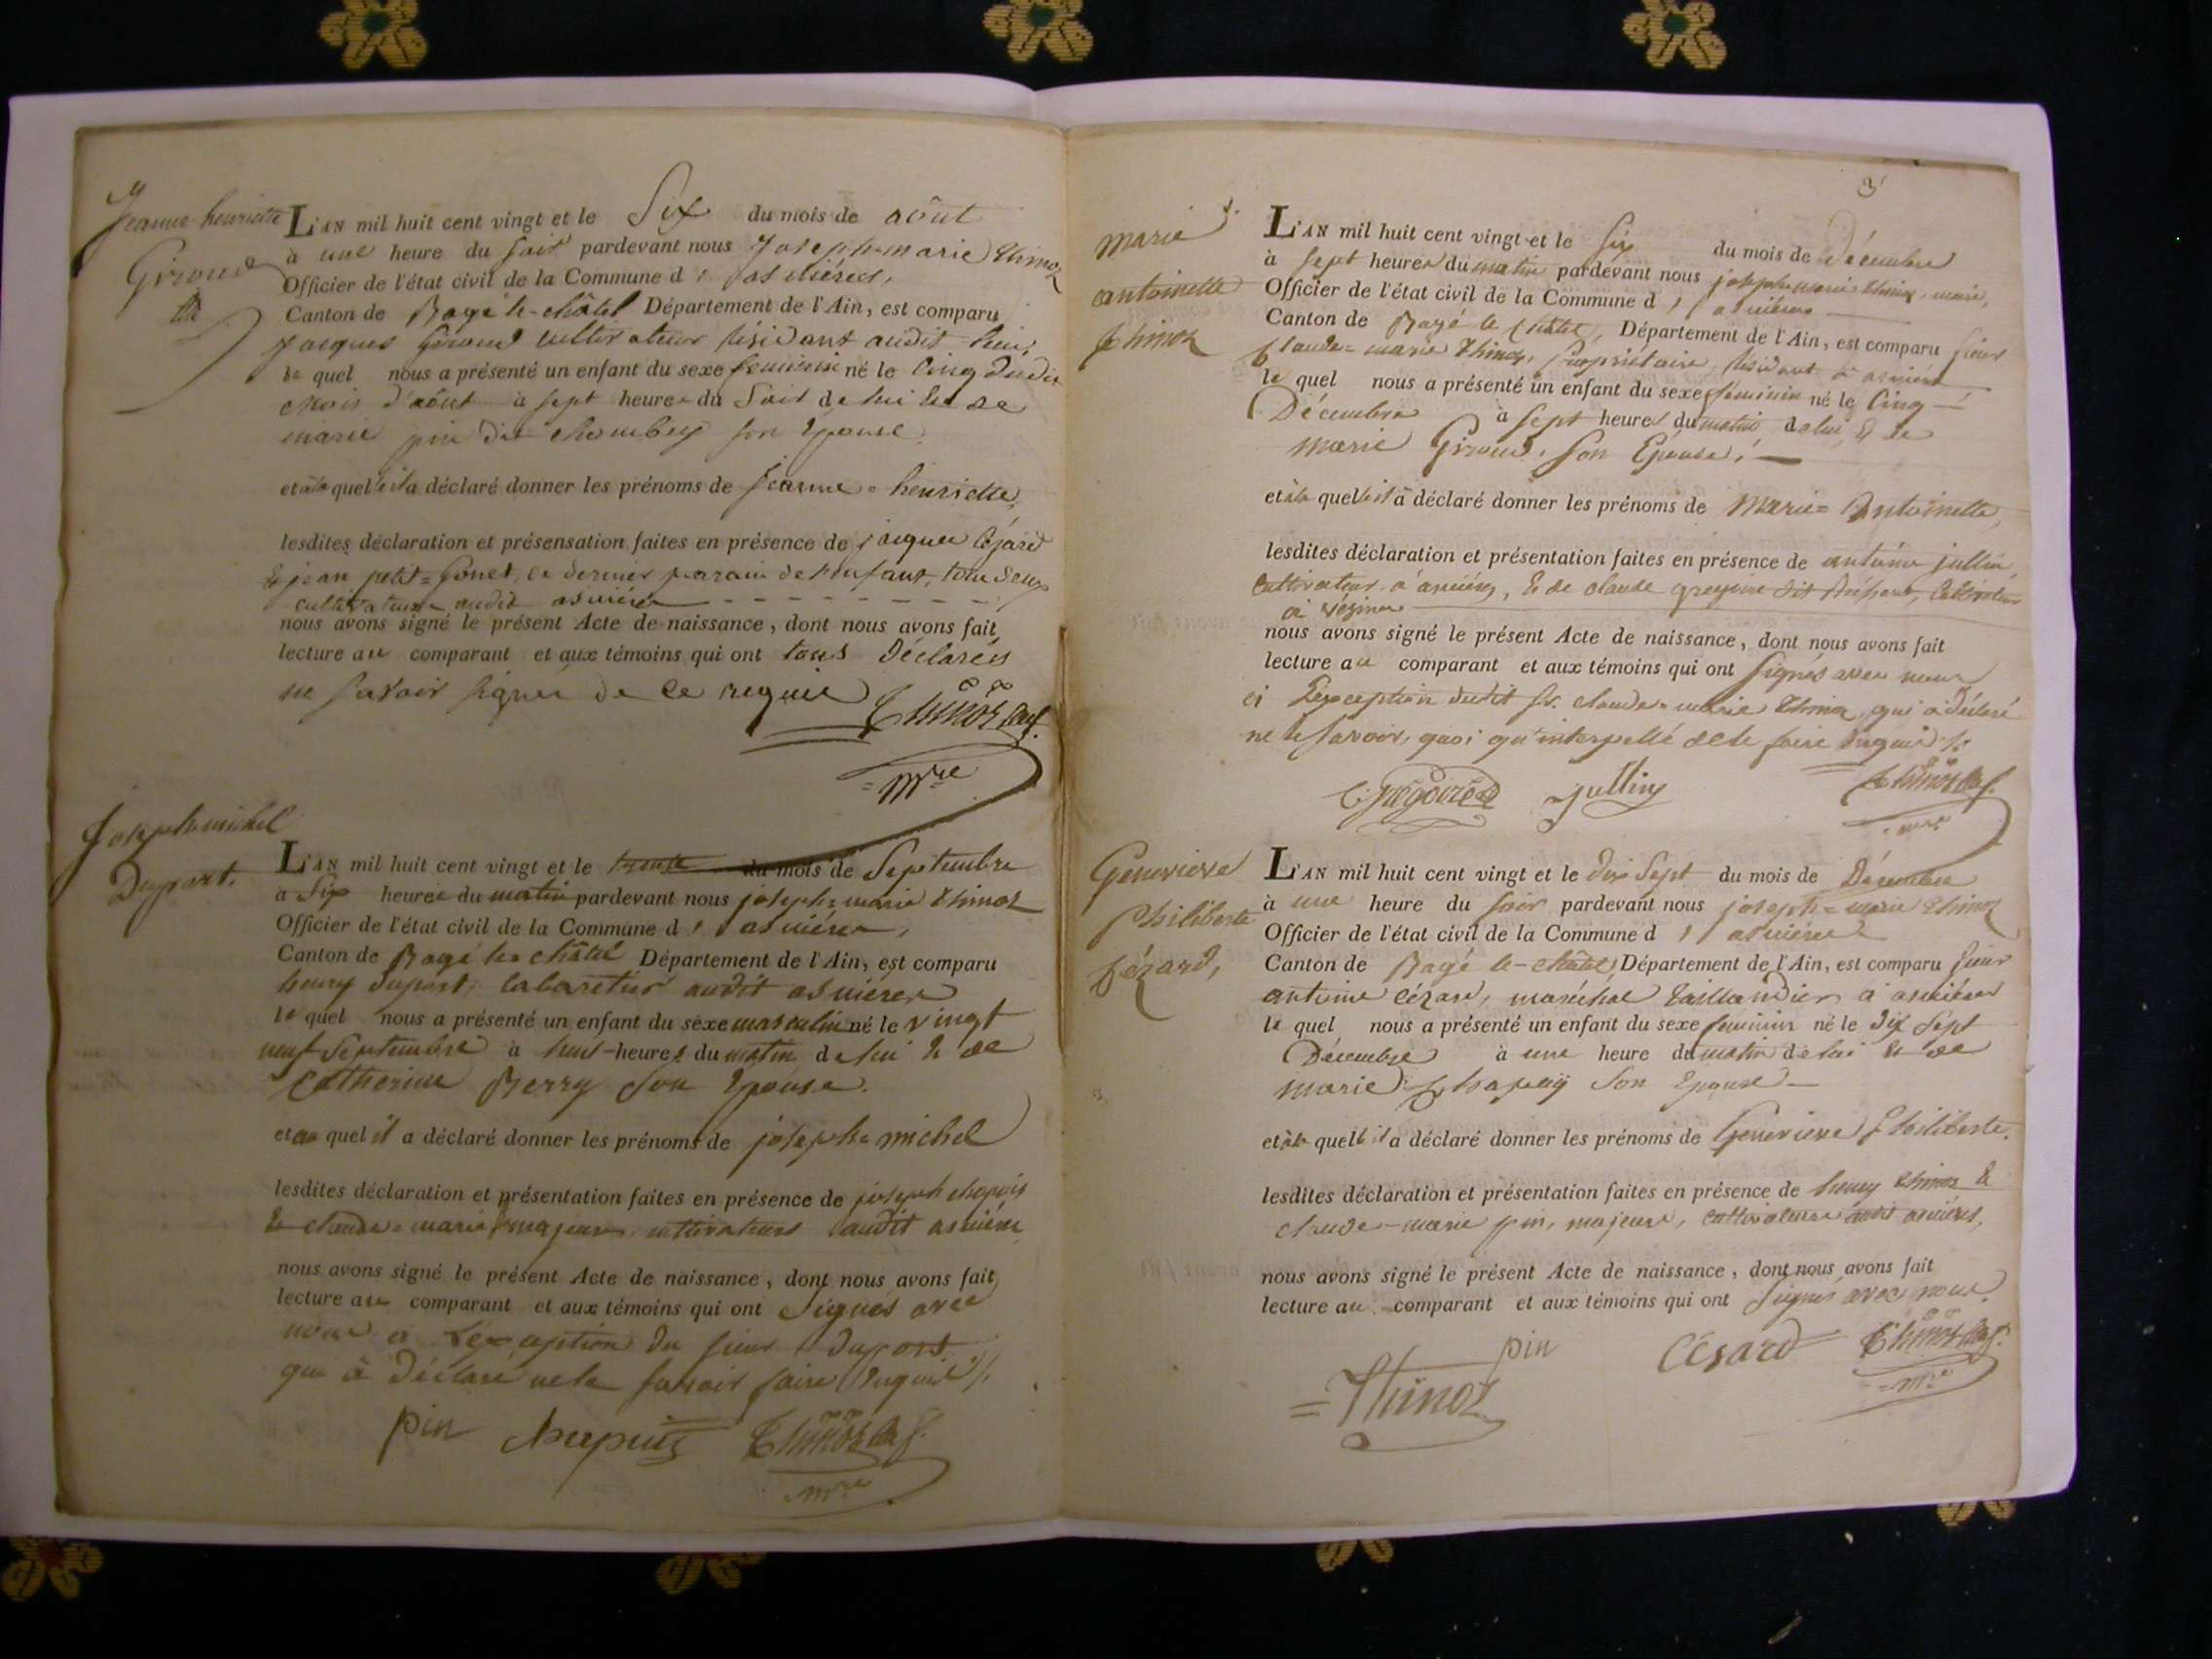 Jeanne henriette
Giroud
L'AN mil huit cent vingt et le Six du mois de août
à une heure du soir pardevant nous Joseph=marie Thinoz
Officier de l'état civil de la Commune d'asnières,
Canton de Bagé le-châtel Département de l'Ain, est comparu
jacques Giroud cultivateur résidant audit lieu,
le quel nous a présenté un enfant du sexe féminin né le Cinq dudit
mois d'août à sept heures du Soir de lui et de
marie pin dit chambey son Epouse.
et à la quelle il a déclaré donner les prénoms de jeanne=henriette,
lesdites déclaration et présensation faites en présence de jacques Cézard
& jean petit=Gonet, ce dernier parain de l'enfant, tous deux
cultivateurs audit asnières
nous avons signé le présent Acte de naissance, dont nous avons fait
lecture au comparant et aux témoins qui ont tous Déclarés
ne savoir signer de ce requis
Thinoz
mre
joseph michel
Duport.
L'AN mil huit cent vingt et le trente du mois de Septembre
à Six heures du matin pardevant nous joseph=marie Thinoz
Officier de l'état civil de la Commune d'asnières,
Canton de Bagé le=châtel Département de l'Ain, est comparu
henry duport, cabaretier audit asnières
le quel nous a présenté un enfant du sexe masculin né le vingt
neuf Septembre à huit heures du matin de lui & de
Catherine Berry son Epouse.
et au quel il a déclaré donner les prénoms de joseph=michel
lesdites déclaration et présentation faites en présence de joseph chapuis
& claude=marie pin majeurs, cultivateurs audit asnières
nous avons signé le présent Acte de naissance, dont nous avons fait
lecture au comparant et aux témoins qui ont Signés avec
nous à L'exception du sieur Duport
qui à Déclaré ne le savoir faire Requis
pin Chapuis Thinoz
mre
3
marie
antoinette
Thinoz
L'AN mil huit cent vingt et le Six du mois de Décembre
à sept heures du matin pardevant nous joseph=marie Thinoz, maire,
Officier de l'état civil de la Commune d'asnières
Canton de Bagé le Châtel, Département de l'Ain, est comparu sieur
Claude=marie Thinoz, Propriétaire, résidant à asnières
le quel nous a présenté un enfant du sexe féminin né le Cinq
Décembre à sept heures du matin de lui & de
marie Giroud, Son Epouse,
et à la quelle il à déclaré donner les prénoms de Marie=Antoinette,
lesdites déclaration et présentation faites en présence de antoine jullin
Cultivateur à asnières, & de claude gregoire dit Cultivateur
à vésines
nous avons signé le présent Acte de naissance, dont nous avons fait
lecture au comparant et aux témoins qui ont Signés avec nous
à l'exception dudit Sr. claude=marie Thinoz qui à déclaré
ne le savoir, quoi qu'interpellé de le faire
C. Grégoire jullin Thinoz
mre
Genevieve
Philiberte
Cézard,
L'AN mil huit cent vingt et le dix Sept du mois de Décembre
à une heure du soir pardevant nous joseph=marie Thinoz
Officier de l'état civil de la Commune d'asnières
Canton de Bagé le-châtel, Département de l'Ain, est comparu sieur
antoine Cézard, maréchal Taillandier à asnières
le quel nous a présenté un enfant du sexe féminin né le Dix Sept
Décembre à une heure du matin de lui & de
marie Chapuy Son Epouse
et à la quelle il a déclaré donner les prénoms de Genevieve Philiberte.
lesdites déclaration et présentation faites en présence de henry Thinoz &
claude-marie pin, majeurs, cultivateurs audit asnières,
nous avons signé le présent Acte de naissance, dont nous avons fait
lecture au comparant et aux témoins qui ont Signés avec nous.
pin Césard Thinoz
Thinoz mre